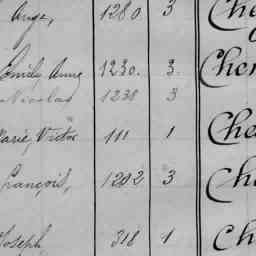 Ange, 1280 3 Che
Emily Anne 1230. 3. Chen
Nicolas 1238 3
Marie, Victor 111 1 Che
François, 1202 3 Ch
Joseph 318 1 Ch